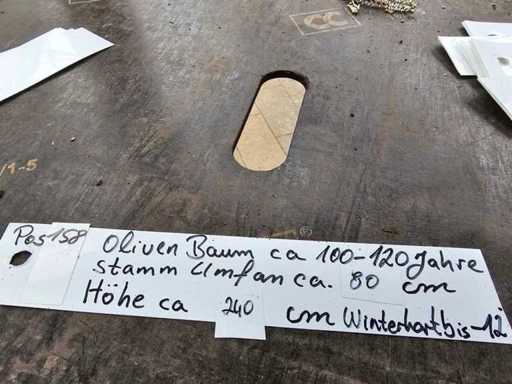 CC
1-5
Pos 158
Oliven Baum ca 100-120 Jahre
stamm Umfan ca. 80 cm
Höhe ca 240 cm Winterhart bis -12